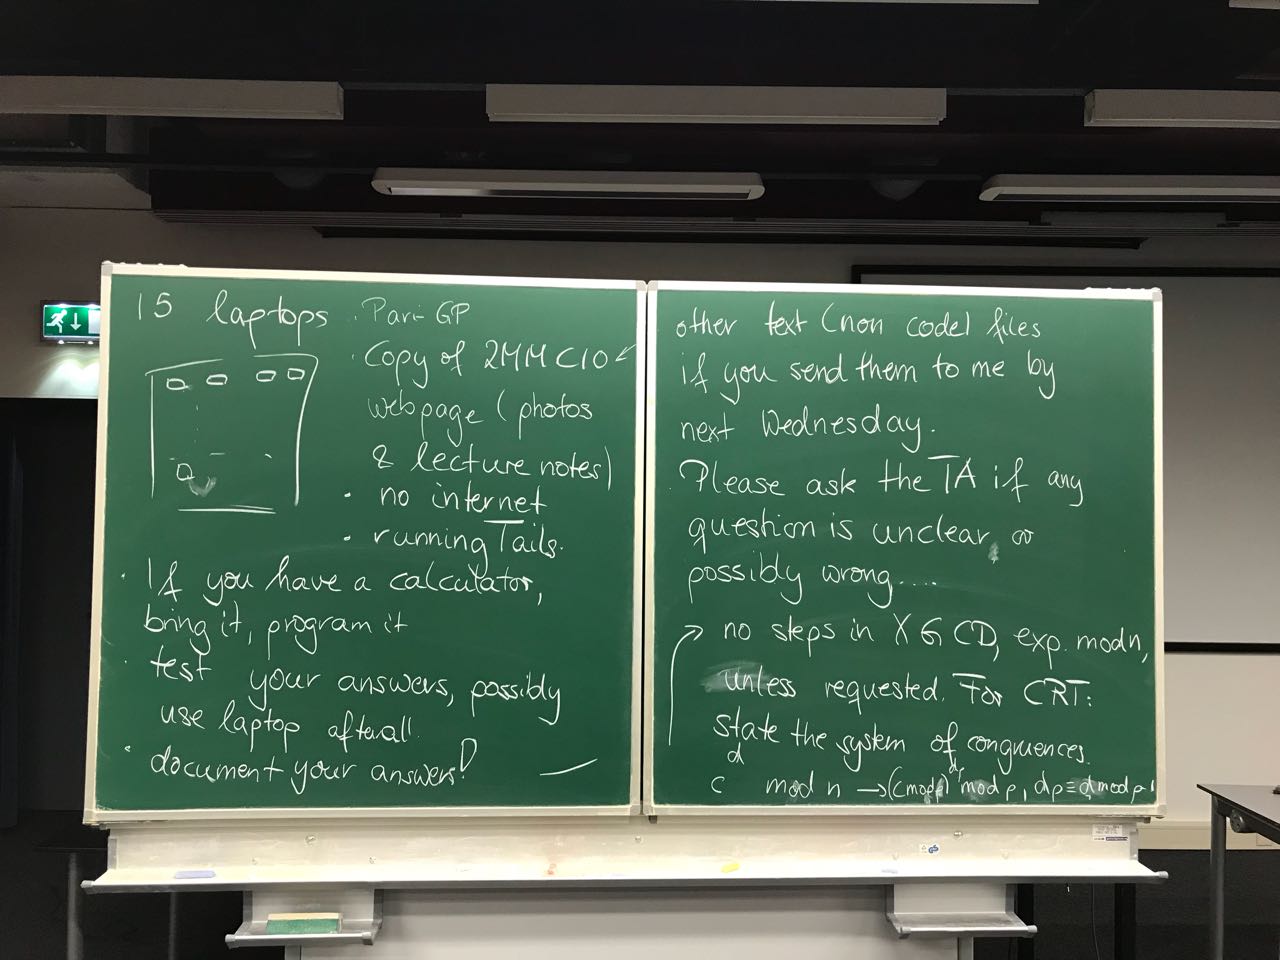 15 laptops
· Pari-GP
· Copy of 2MMC10
webpage (photos
& lecture notes)
· no internet
· running Tails.
· If you have a calculator,
bring it, program it
· test your answers, possibly
use laptop afterall
· document your answers!
other text (non code) files
if you send them to me by
next Wednesday.
Please ask the TA if any
question is unclear or
possibly wrong....
→ no steps in XGCD, exp. mod n,
unless requested. For CRT:
state the system of congruences.
c^d mod n → (c mod p)^dp mod p, dp ≡ d mod p-1